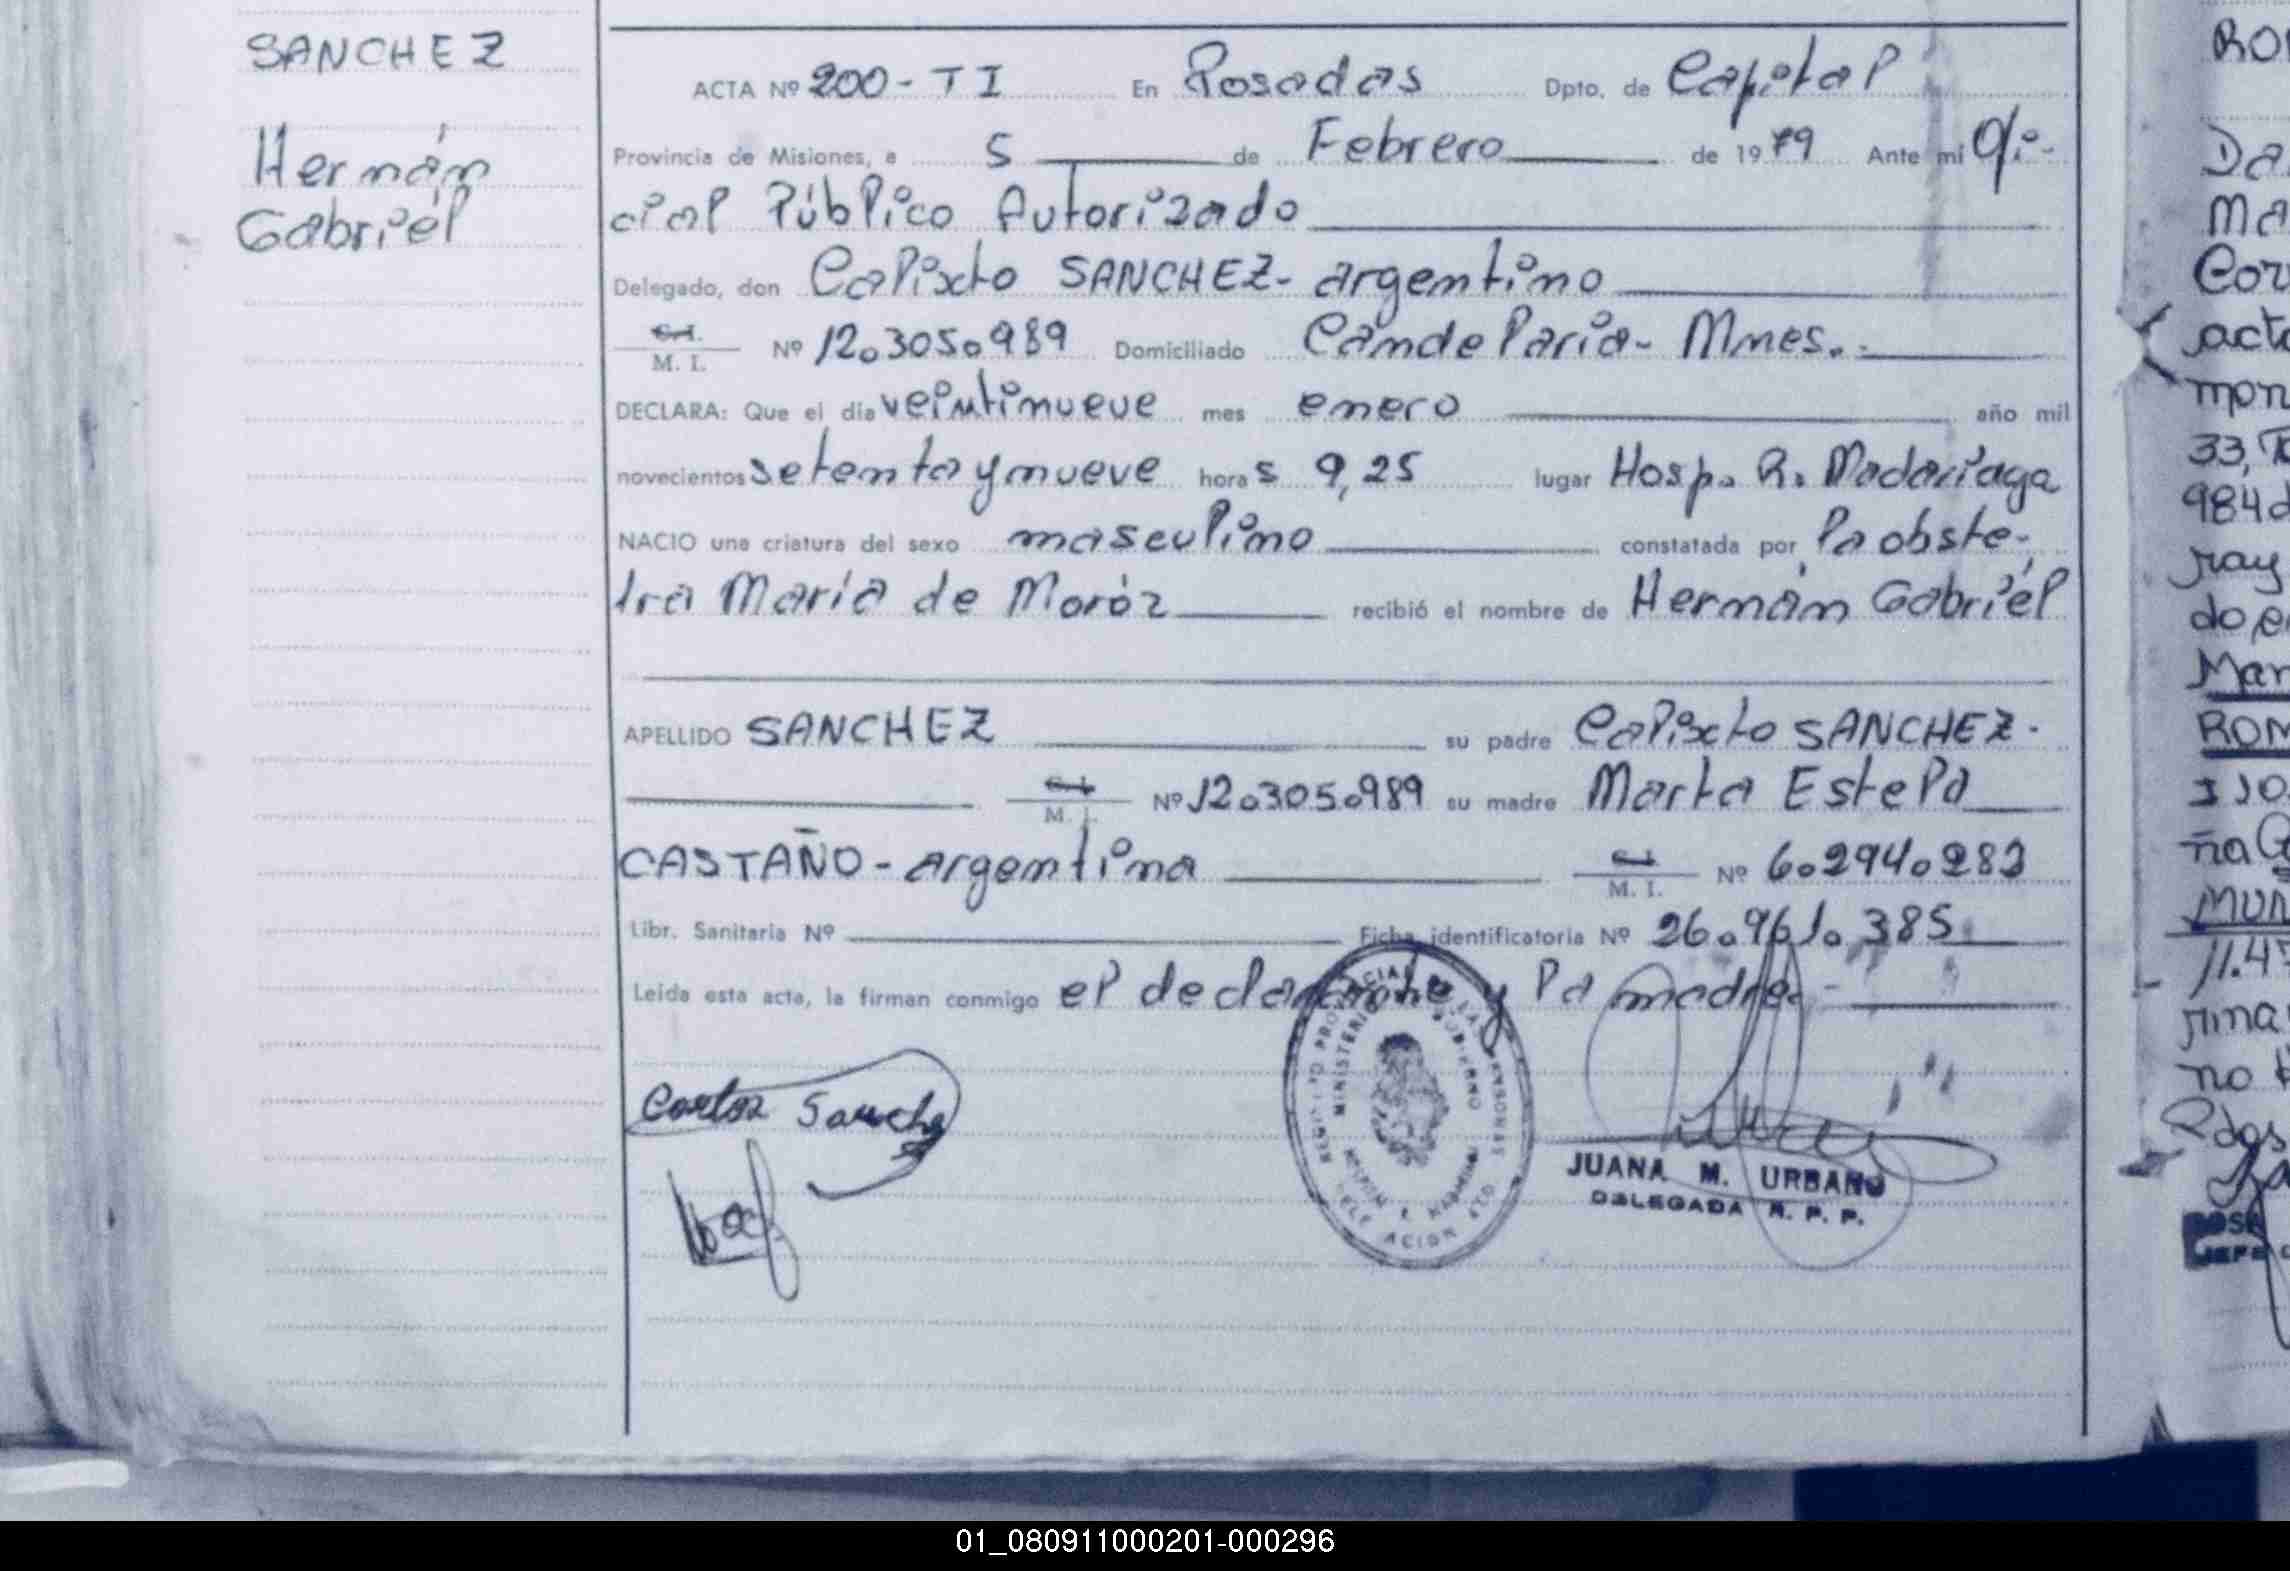 SANCHEZ
Hermán
Gabriel
ACTA Nº 200-TI En Posadas Dpto. de Capital
Provincia de Misiones, a 5 de Febrero de 1979 Ante mí Ofi-
cial Público Autorizado
Delegado, don Calixto SANCHEZ- argentino
C.I.
M. I. Nº 12.305.989 Domiciliado Candelaria- Mnes.-
DECLARA: Que el día veintinueve mes enero año mil
novecientos setenta y nueve hora s 9,25 lugar Hosp. R. Madariaga
NACIO una criatura del sexo masculino constatada por la obste-
tra María de Moróz recibió el nombre de Hermán Gabriel
APELLIDO SANCHEZ su padre Calixto SANCHEZ.
M. I. Nº 12.305.989 su madre Marta Estela
CASTAÑO - argentina M. I. Nº 6.294.283
Libr. Sanitaria Nº Ficha identificatoria Nº 26.961.385
Leída esta acta, la firman conmigo el declarante y la madre.-
Sanchez
REGISTRO PROVINCIAL DE LAS PERSONAS
MINISTERIO DE GOBIERNO
DELEGACION
JUANA M. URBANO
DELEGADA R. P. P.
Da
Ma
Cor
acta
33,
984
do
Mar
ROM
ña
MUR
11.4
no
Rdos
JEFE
01_080911000201-000296